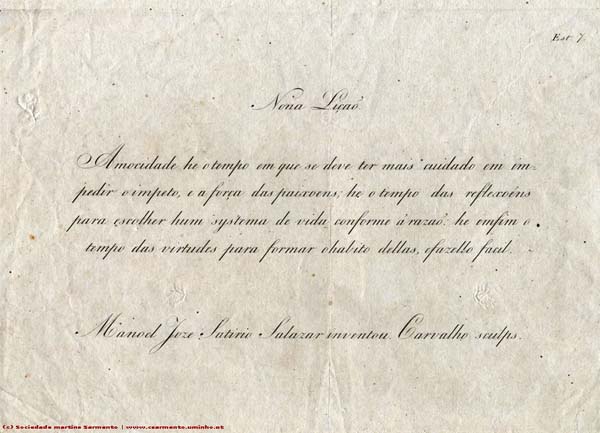 Est 7.
Nona Liçaõ.
Amocidade he otempo em que se deve ter mais cuidado em im=
pedir oimpeto, e a força das paixoens; he o tempo das reflexoens
para escolher hum systema de vida conforme á razaõ: he emfim o
tempo das virtudes para formar ohabito dellas, efazello facil.
Manoel Joze Satirio Salazar inventou. Carvalho sculps.
(c) Sociedade martins Sarmento | www.csarmento.uminho.pt